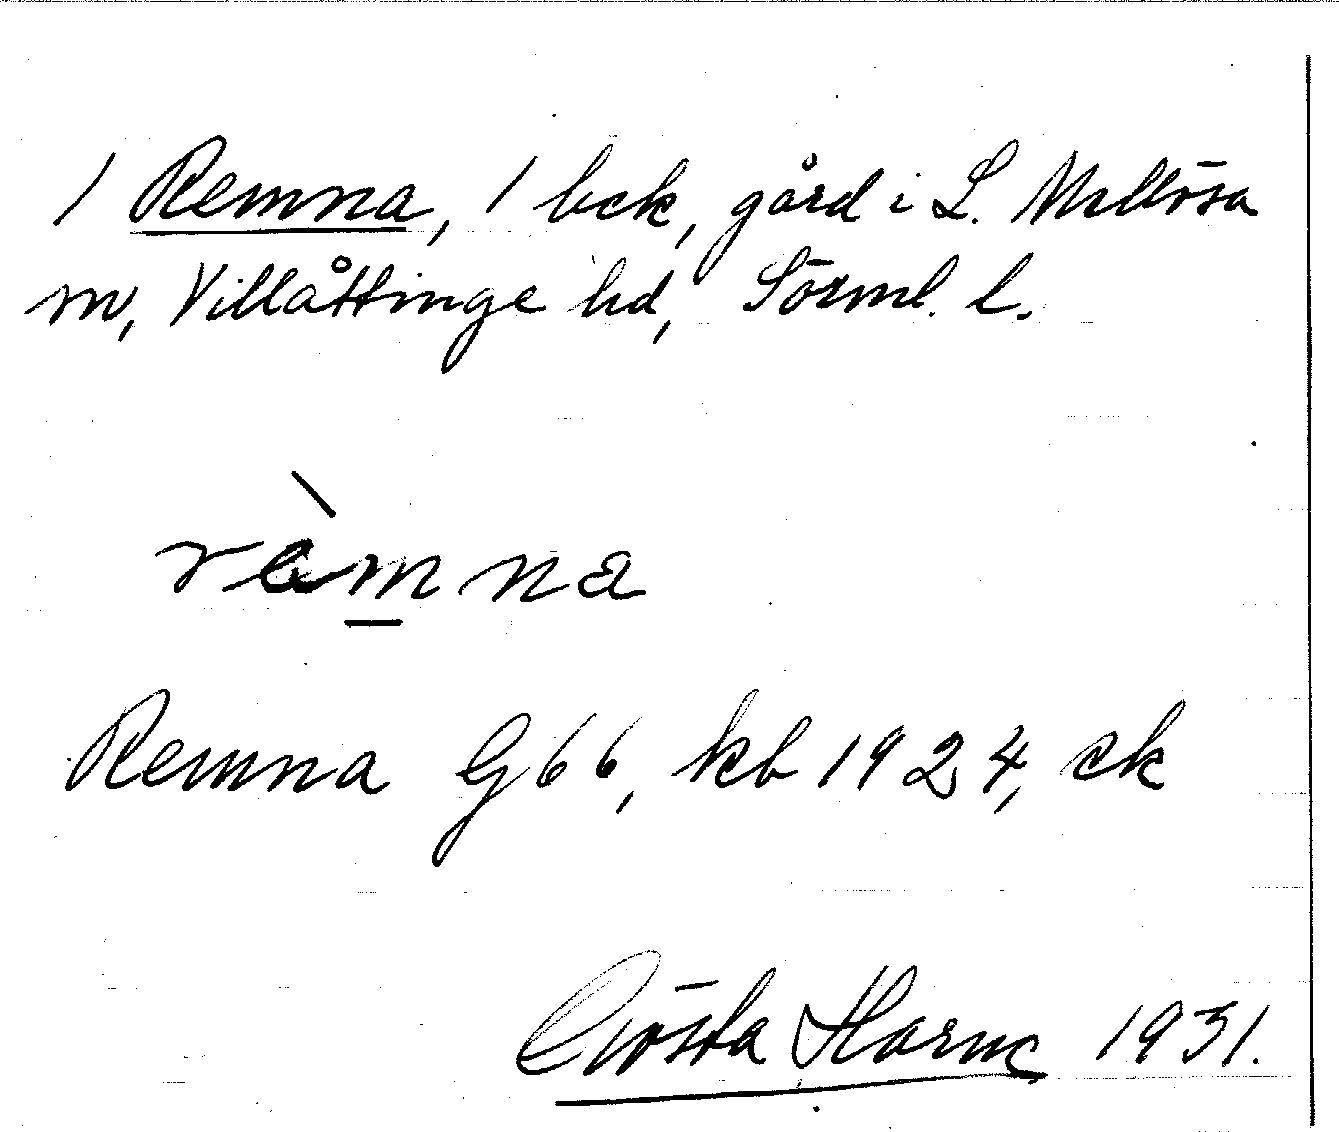 1 Remna, 1 bck, gård i L. Mellösa
sn, Villåttinge hd, Sörml. l.
rèmna
Remna G 66, kb 1924, ek
Gösta Harne 1931.